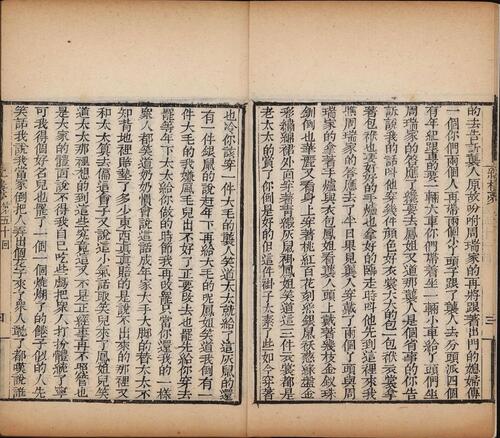 的去告訴襲人原故吩咐周瑞家的再將跟著出門的媳婦傳
一個你們兩個人再帶兩個小丫頭子跟了襲人去分頭派四個
有年紀的跟車要一輛大車你們帶着坐一輛小車給丫頭們坐
周瑞家的答應了纔要去鳳姐又道那襲人是個省事的你告
訴說我的話叫他穿幾件顏色好衣裳大大的包一包袱衣裳拿
著包袱也要好好的手爐也拿好的臨走時叫他先到這裡來我
瞧周瑞家的答應去了半日果見襲人穿戴了兩個丫頭與周
瑞家的拿著手爐與衣包鳳姐看襲人頭上戴著幾枝金釵珠
釧倒也華麗又看身上穿著桃紅百花刻絲銀鼠襖葱綠盤金
彩繡綿裙外面穿著青緞灰鼠褂鳳姐笑道這三件衣裳都是
老太太的賞了你倒是好的但這件褂子太素了些如今穿著
也冷你該穿一件大毛的襲人笑道太太就給了這灰鼠的還
有一件銀鼠的說赶年下再給大毛的呢鳳姐笑道我倒有一
件大毛的我嫌鳳毛兒出不好了正要改去也罷先給你穿去
罷等年下太太給你做的時節我再改罷只當你還我的一樣
衆人都笑道奶奶慣會說這話成年家大手大脚的替太太不
知背地裡賠墊了多少東西真真賠的是說不出來的那裡又
和太太筭去偏這會子又說這小氣話取笑兒來了鳳姐兒笑
道太太那裡想的到這些究竟這又不是正經事再不照管也
是大家的體面說不得我自己吃些虧把衆人打扮體統了寧
可我得個好名兒也罷了一個一個燒糊了的餜子似的人先
笑話我說我當家倒把人弄出個花子來了衆人聽了都嘆說誰